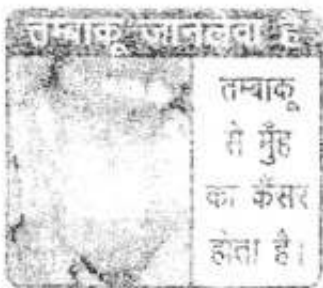 तम्बाकू जानलेवा है
तम्बाकू
से मुँह
का कैंसर
होता है।